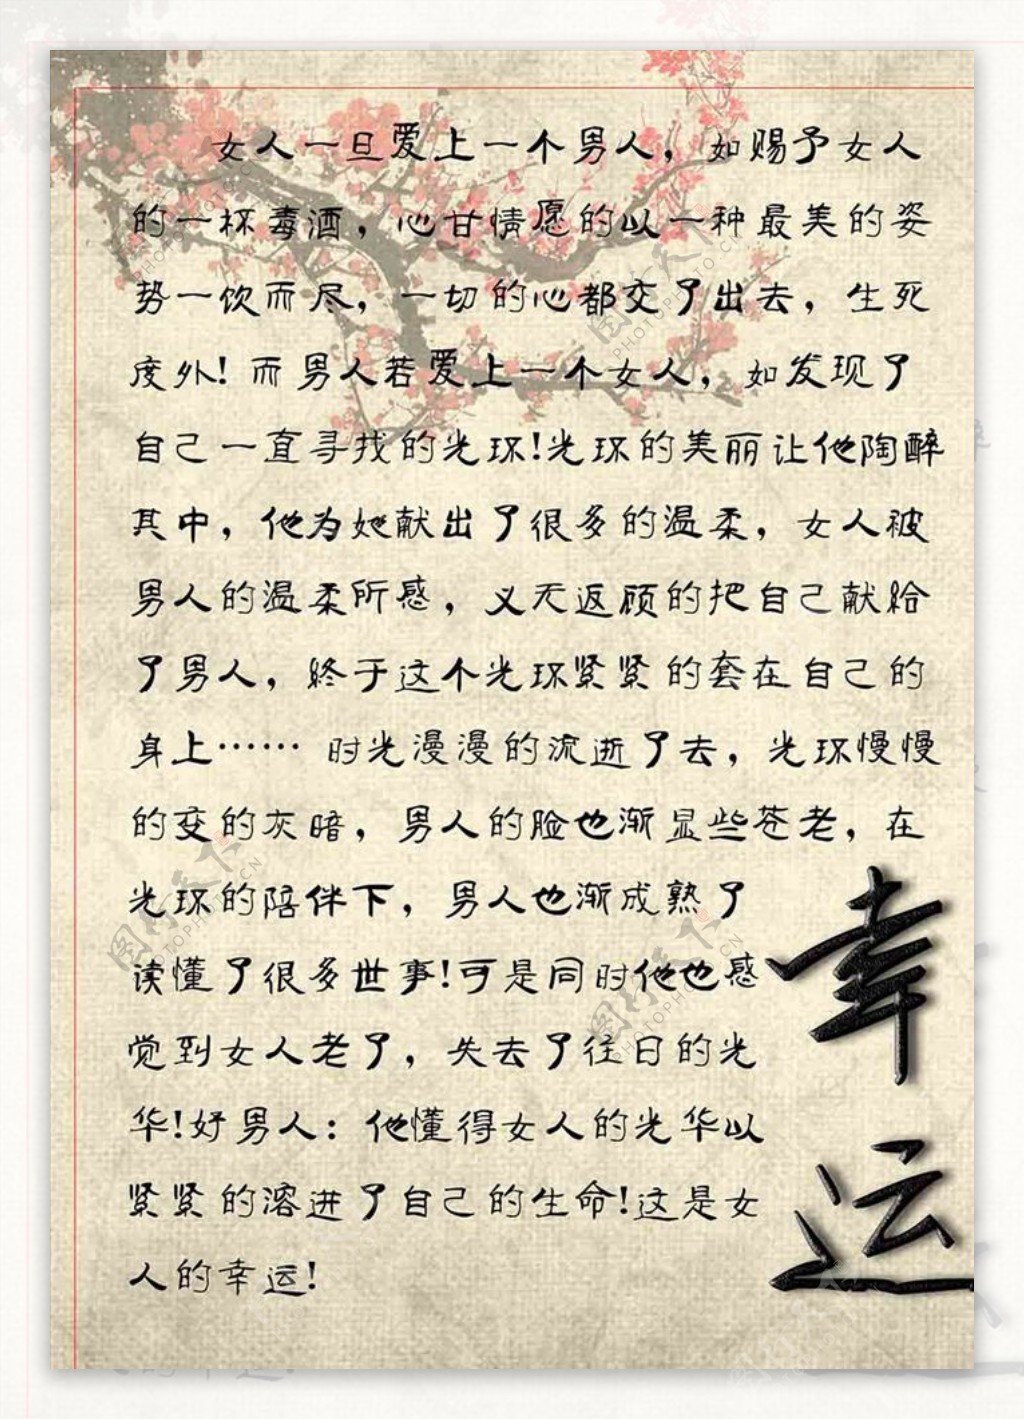 女人一旦爱上一个男人，如赐予女人
的一杯毒酒，心甘情愿的以一种最美的姿
势一饮而尽，一切的心都交了出去，生死
度外！而男人若爱上一个女人，如发现了
自己一直寻找的光环！光环的美丽让他陶醉
其中，他为她献出了很多的温柔，女人被
男人的温柔所感，义无返顾的把自己献给
了男人，终于这个光环紧紧的套在自己的
身上…… 时光漫漫的流逝了去，光环慢慢
的变的灰暗，男人的脸也渐显些苍老，在
光环的陪伴下，男人也渐成熟了
读懂了很多世事！可是同时他也感
觉到女人老了，失去了往日的光
华！好男人：他懂得女人的光华以
紧紧的溶进了自己的生命！这是女
人的幸运！
幸运